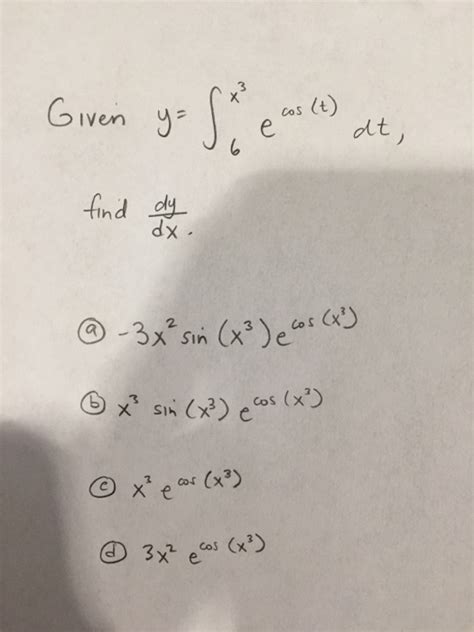 Given y= ∫₆^x³ e^cos (t) dt,
find dy/dx.
ⓐ -3x² sin (x³) e^cos (x³)
ⓑ x³ sin (x³) e^cos (x³)
ⓒ x³ e^cos (x³)
ⓓ 3x² e^cos (x³)